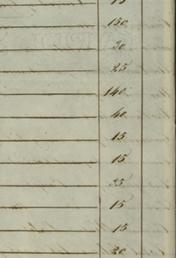 150
20
25
140
40
15
15
25
15
15
20